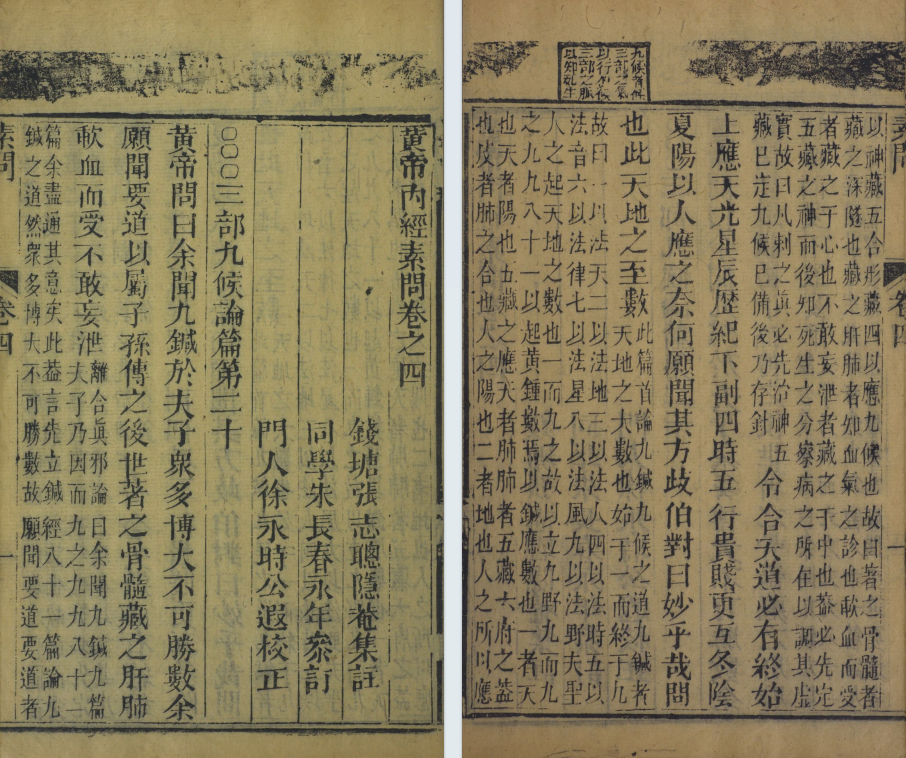 黃帝內經素問卷之四
錢塘張志聰隱菴集註
同學朱長春永年叅訂
門人徐永時公遐校正
○○○三部九候論篇第二十
黃帝問曰余聞九鍼於夫子衆多博大不可勝數余
願聞要道以屬子孫傳之後世著之骨髓藏之肝肺
歃血而受不敢妄泄
離合眞邪論曰余聞九鍼九篇
夫子乃因而九之九九八十一
篇余盡通其意矣此葢言先立鍼經八十一篇論九
鍼之道然衆多博大不可勝數故願聞要道要道者
素問
卷四
一
三部之氣
三部之脈
素問
卷四
一
以神藏五合形藏四以應九候也故曰著之骨髓者
藏之深隧也藏之肝肺者知血氣之診也歃血而受
者藏之于心也不敢妄泄者藏之于中也葢必先定
五藏之神而後知死生之分察病之所在以調其虛
實故曰凡刺之眞必先治神五
藏已定九候已備後乃存針
令合天道必有終始
上應天光星辰歷紀下副四時五行貴賤更互冬陰
夏陽以人應之奈何願聞其方歧伯對曰妙乎哉問
也此天地之至數
此篇首論九鍼九候之道九鍼者
天地之大數也始于一而終于九
故曰一以法天二以法地三以法人四以法時五以
法音六以法律七以法星八以法風九以法野夫聖
人之起天地之數也一而九之故以立九野九而九
之九九八十一以起黃鍾數焉以鍼應數也一者天
也天者陽也五藏之應天者肺肺者五藏六府之葢
也皮者肺之合也人之陽也二者地也人之所以應